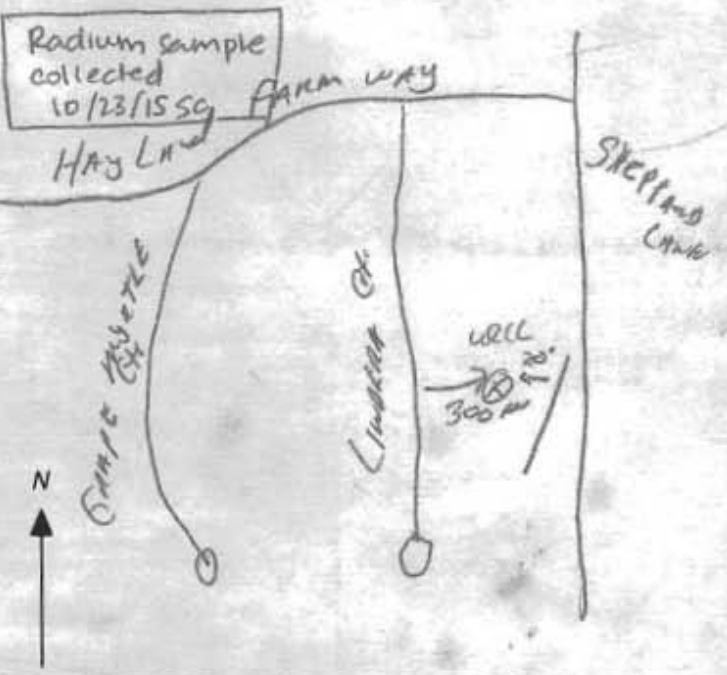 Radium sample
collected
10/23/15 SG
FARM WAY
HAY LAND
SHEPPARD
LANE
GRAPE MYRTLE
Ct.
LINDERA Ct.
WELL
300
N